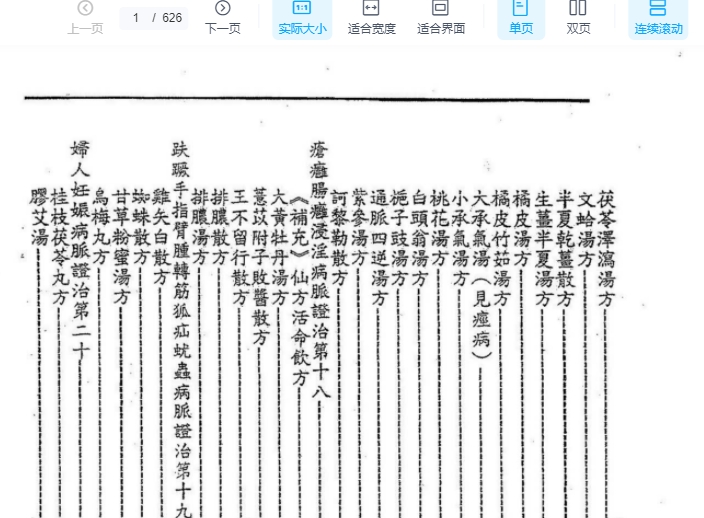 上一页
1 / 626
下一页
实际大小
适合宽度
适合界面
单页
双页
连续滚动
茯苓澤瀉湯方
文蛤湯方
半夏乾薑散方
生薑半夏湯方
橘皮湯方
橘皮竹茹湯方
大承氣湯（見痙病）
小承氣湯方
桃花湯方
白頭翁湯方
梔子豉湯方
通脈四逆湯方
紫參湯方
訶黎勒散方
瘡癰腸癰浸淫病脈證治第十八
《補充》仙方活命飲方
大黃牡丹湯方
薏苡附子敗醬散方
王不留行散方
排膿散方
排膿湯方
趺蹶手指臂腫轉筋狐疝蚘蟲病脈證治第十九
雞矢白散方
蜘蛛散方
甘草粉蜜湯方
烏梅丸方
婦人妊娠病脈證治第二十
桂枝茯苓丸方
膠艾湯